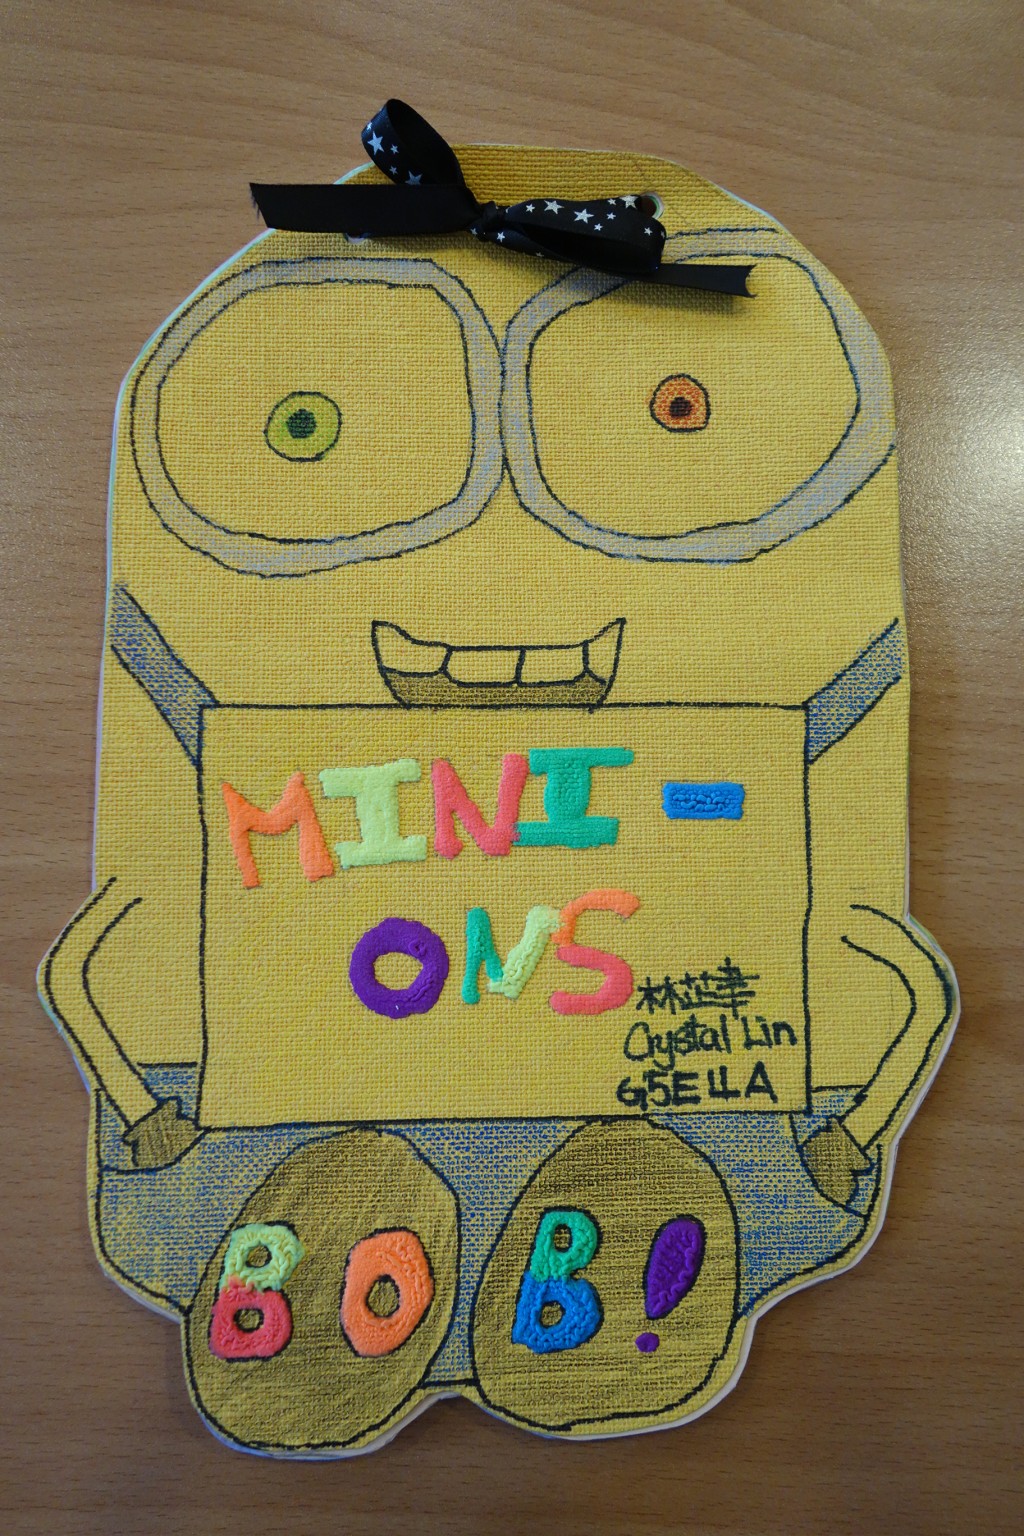 MINI-
ONS
林
Crystal Lin
G5ELLA
BOB!